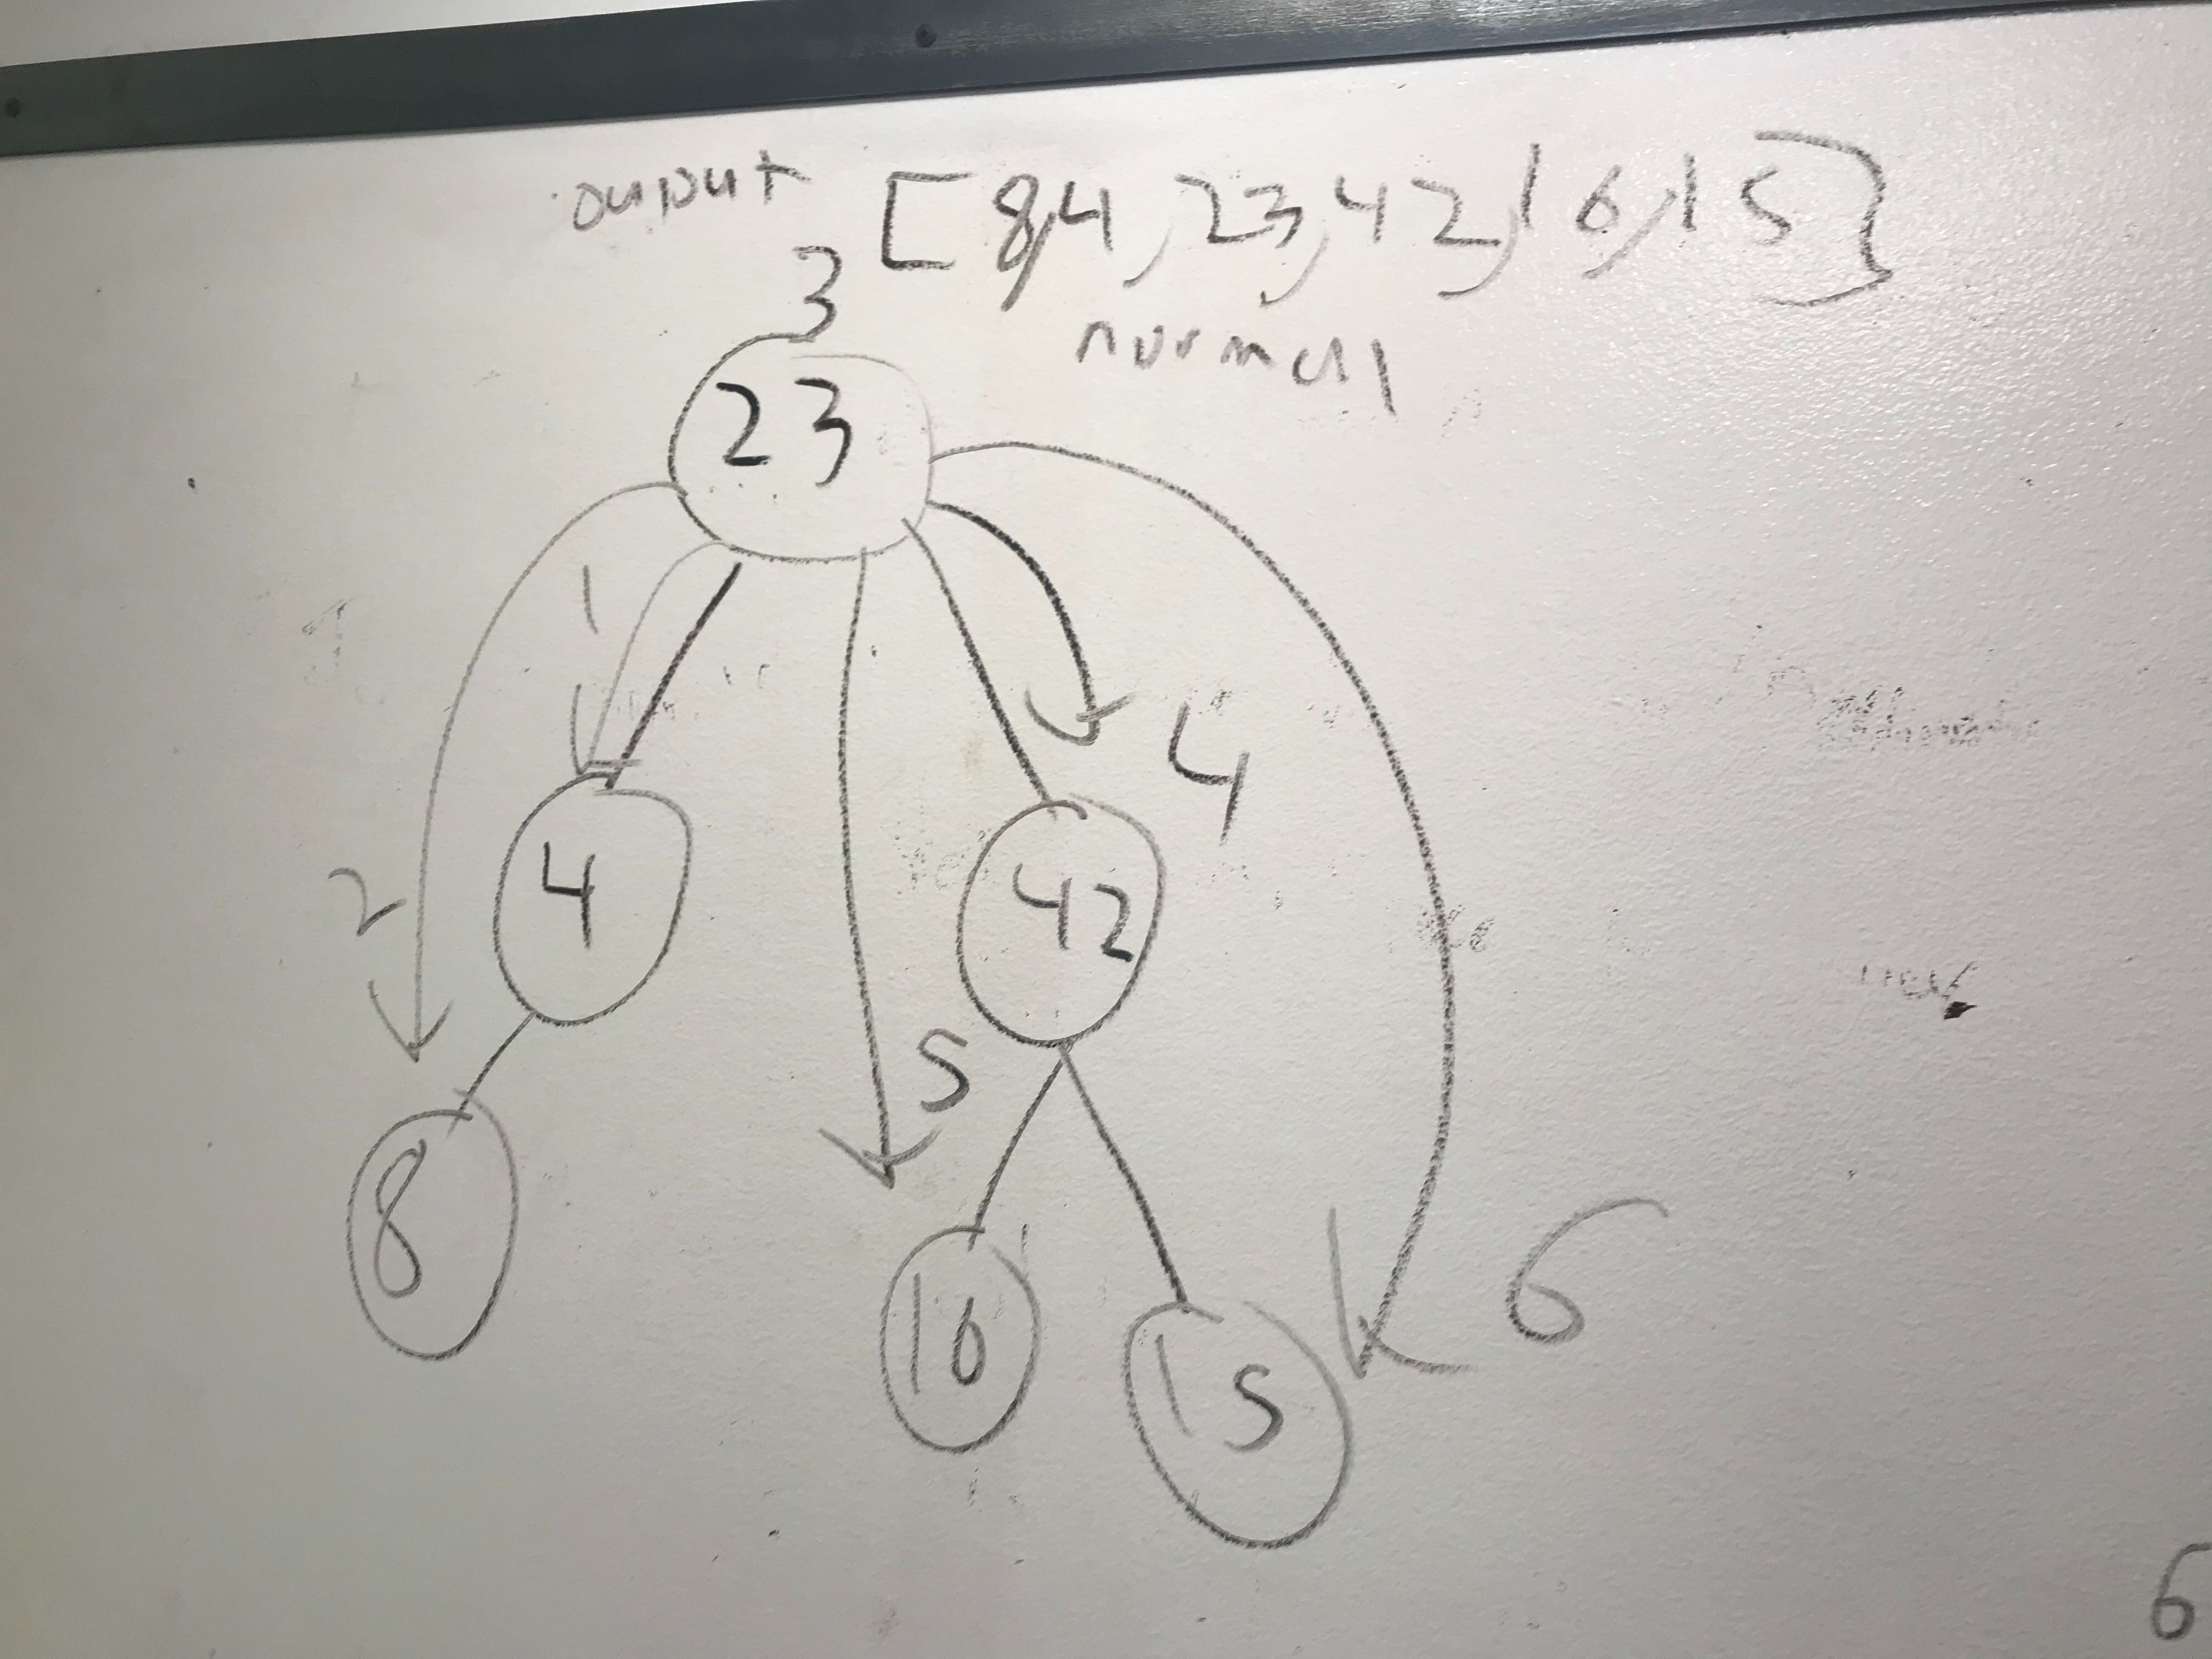 output [8,4,23,42,16,15]
normal
3
23
1
4
2
4
42
5
8
16
15
6
6